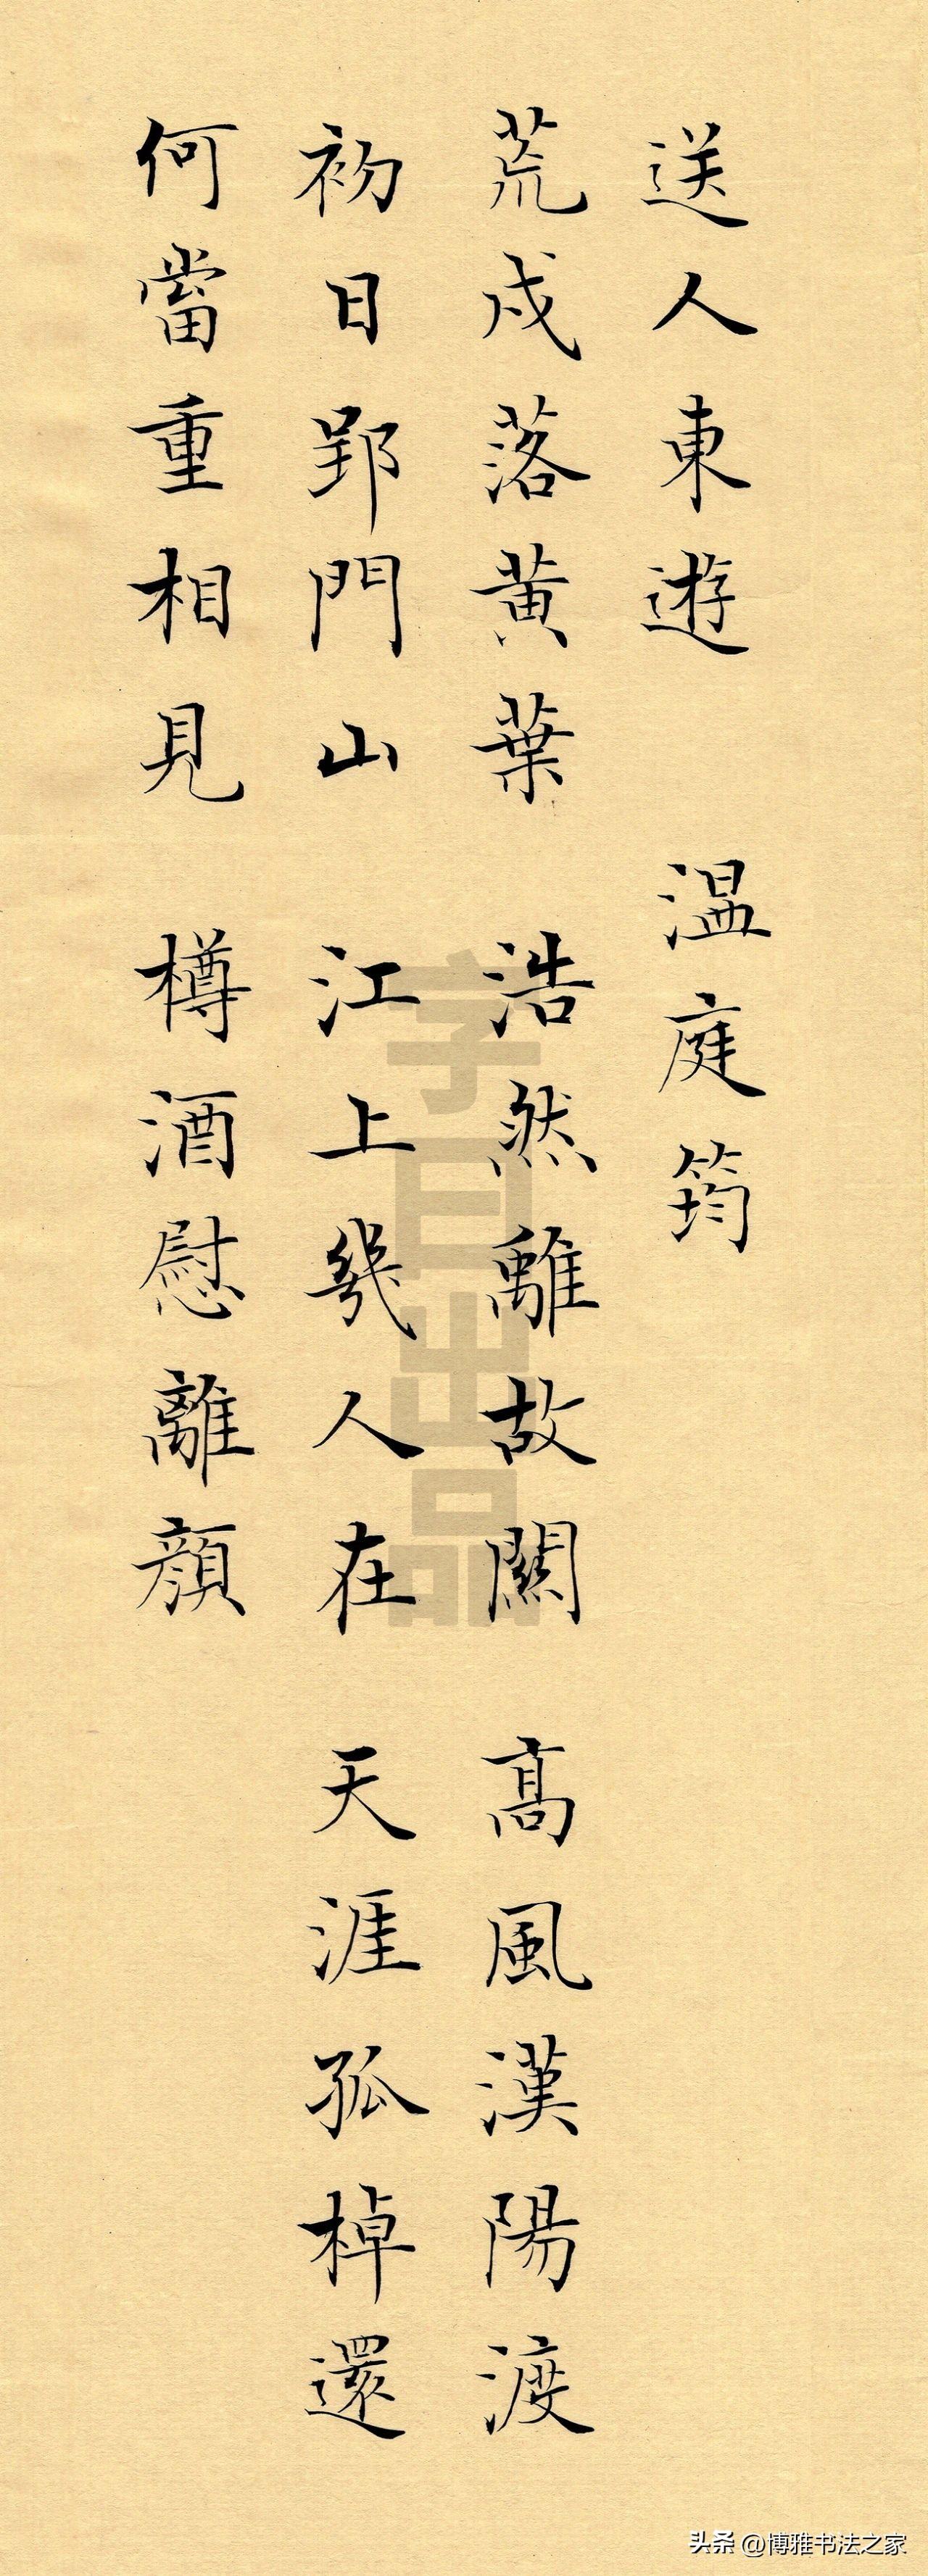 送人東遊 温庭筠
荒戍落黄葉 浩然離故關 高風漢陽渡
初日郢門山 江上幾人在 天涯孤棹還
何當重相見 樽酒慰離顔
字曰出品
头条 @博雅书法之家